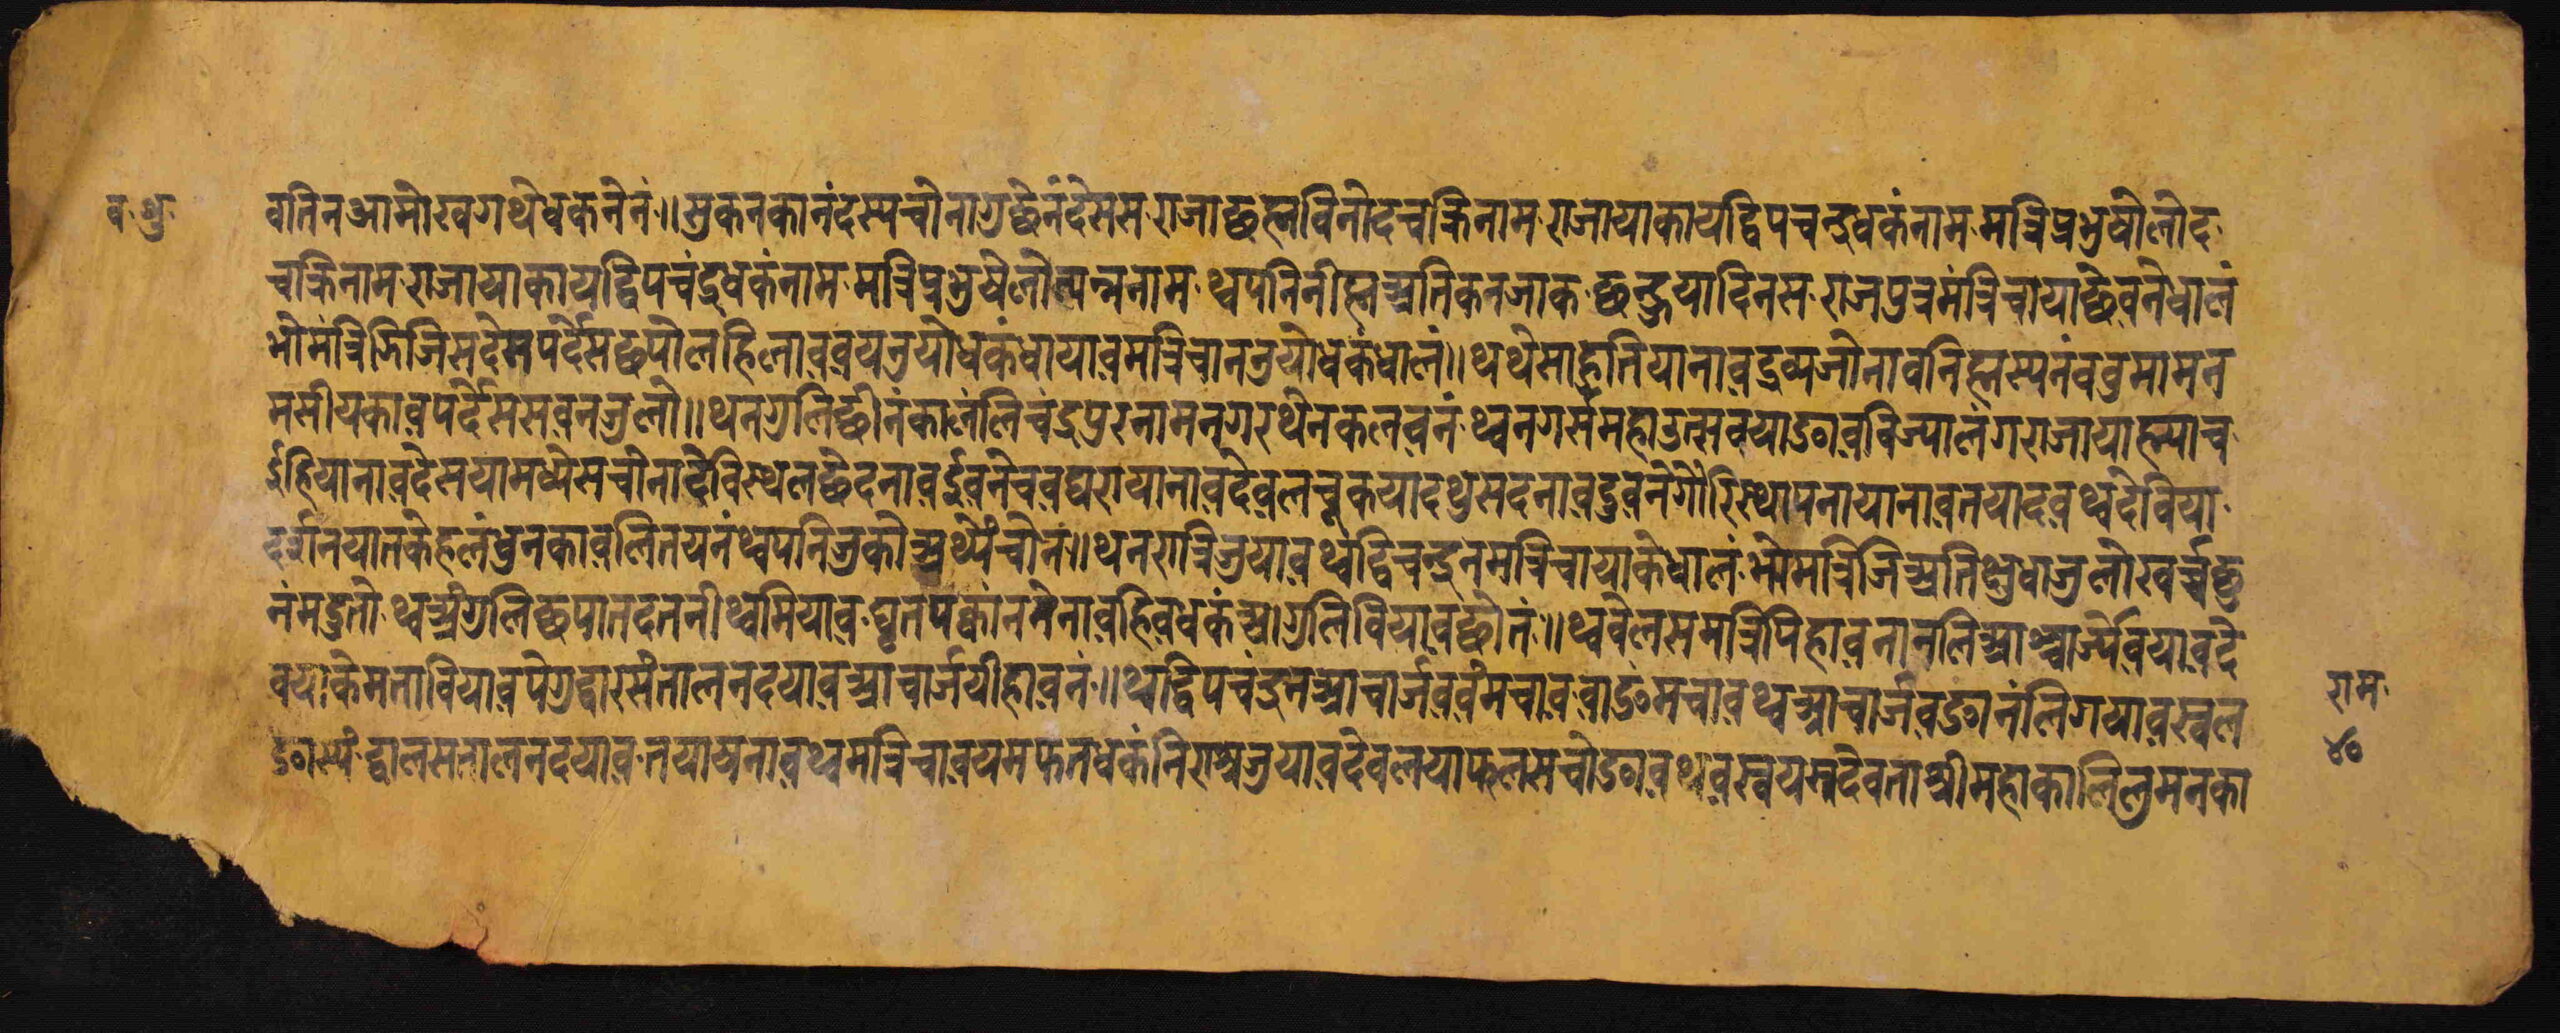 व.शु.
वतिनआमोखगथेधकनेनं॥सुकनकानंदस्यचोनागुछेनंदेससराजाछह्मविनोदचक्रिनामराजायाकायद्विपचन्द्रधकंनाममन्त्रिप्रभुषीलोद
चक्रिनामराजायाकायद्विपचंद्रधकंनाममन्त्रिप्रभुषेलोत्पन्ननामथ्वपनिनीह्मअतिकनजाकछन्हुयादिनसराजपुत्रमंत्रिचायाछेवनेधालं
भोमंत्रिजिजिसदेसपर्देसछपोलहिलाववयनुयोधकंधायावमन्त्रिचाननुयोधकंधालं॥थथेसाहुतियानावद्रव्यजोनावनिह्मस्यनंवबुमामन
मसीयकावपर्देससवनजुलो॥थनगुलिछीनंकालंलिचंद्रपुरनामनगरथेनकलवनंथ्वनगर्समहाउत्सवयाङावविज्यालंगराजायाह्म्याच
ईहियानावदेसयामध्येसचोनादेविस्थलछेदनावर्ईवनेचवद्यरायानावदेवलचूकयादथुसदनावदुवनेगौरिस्थापनायानावतयादवथ्वदेविया
दर्शनयातकेहलंधुनकावलितयनंथ्वपनिजुकोअथ्येंचोनं॥थनरात्रिजुयावथ्वद्विचन्द्रनमन्त्रिचायाकेधालंभोमन्त्रिजिअतिक्षुधाजुलोखर्च्चछु
नंमदुतोथ्वअंगुलिछपातदतनीथ्वमियावघृतपक्वांनमेनावहिवधकंअंगुलिवियावछोतं॥थ्ववेलसमंत्रिपिहावनानलिआश्चार्ज्येवयावदे
वयाकेमतावियावपेगुद्वारसंतालनदयावआचार्जयीहावनं॥थ्वद्विपचंद्रनआचार्जववंमचाववाङंमचावथ्वआचार्जवङानंलिगयावस्वल
ङास्यंद्वालसतालनदयावतयाखनावथ्वमन्त्रिचावयमफतधकंनिराश्रजुयावदेवलयाफलसचोङावथवस्वयम्नदेवताश्रीमहाकालिलुमनका
राम
४०